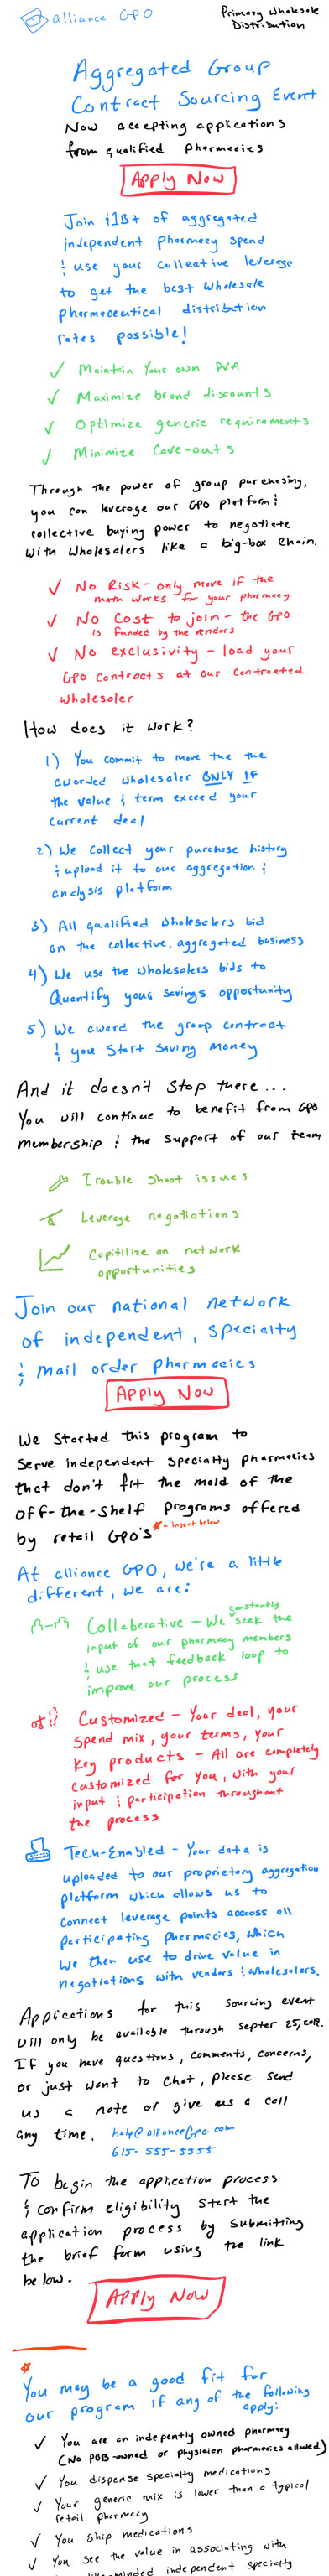 alliance GPO
Primary Wholesale
Distribution
Aggregated Group
Contract Sourcing Event
Now accepting applications
from qualified pharmacies
Apply Now
Join $1B+ of aggregated
independent pharmacy spend
& use your collective leverage
to get the best wholesale
pharmaceutical distribution
rates possible!
✓ Maintain your own PVA
✓ Maximize brand discounts
✓ Optimize generic requirements
✓ Minimize Cave-outs
Through the power of group purchasing,
you can leverage our GPO platform &
collective buying power to negotiate
with wholesalers like a big-box chain.
✓ No Risk - only move if the
math works for your pharmacy
✓ No Cost to join - the GPO
is funded by the vendors
✓ No exclusivity - load your
GPO contracts at our contracted
wholesaler
How does it work?
1) You commit to move the the
awarded wholesaler ONLY IF
the value & term exceed your
current deal
2) We collect your purchase history
& upload it to our aggregation &
analysis platform
3) All qualified wholesalers bid
on the collective, aggregated business
4) We use the wholesalers bids to
Quantify your savings opportunity
5) We award the group contract
& you start saving money
And it doesn't stop there...
You will continue to benefit from GPO
membership & the support of our team
Trouble shoot issues
Leverage negotiations
Copitilize on network
opportunities
Join our national network
of independent, specialty
& mail order pharmacies
Apply Now
We started this program to
serve independent specialty pharmacies
that don't fit the mold of the
off-the-shelf programs offered
by retail GPO's * - insert below
At alliance GPO, we're a little
different, we are:
Collaberative - We constantly seek the
input of our pharmacy members
& use that feedback loop to
improve our process
Customized - Your deal, your
spend mix, your terms, your
key products - All are completely
customized for you, with your
input & participation throughout
the process
Tech-Enabled - Your data is
uploaded to our proprietary aggregation
platform which allows us to
connect leverage points accross all
participating pharmacies, which
we then use to drive value in
negotiations with vendors & wholesalers.
Applications for this sourcing event
will only be available through 25,
If you have questions, comments, concerns,
or just want to chat, please send
us a note or give us a call
any time. help@allianceGpo.com
615-555-5555
To begin the application process
& confirm eligibility start the
application process by submitting
the brief form using the link
below.
Apply Now
*
You may be a good fit for
our program if any of the following
apply:
✓ You are an indepently owned pharmacy
(No PBB-owned or physician pharmacies allowed)
✓ You dispense specialty medications
✓ Your generic mix is lower than a typical
retail pharmacy
✓ You ship medications
✓ You see the value in associating with
independent specialty